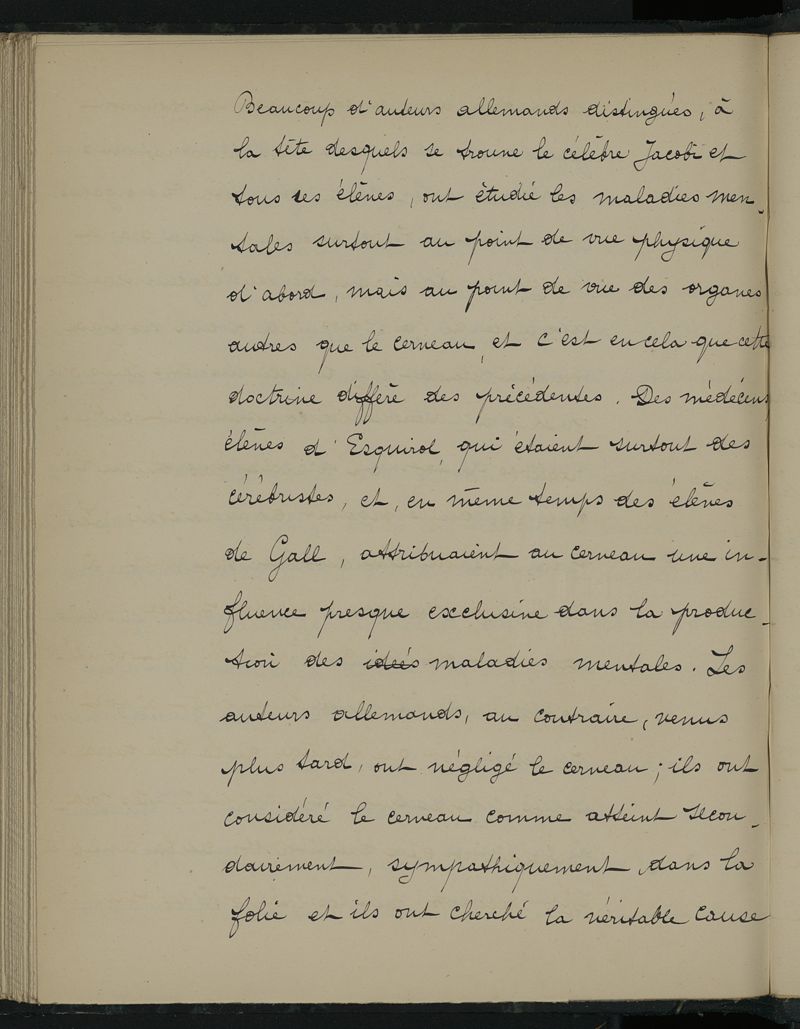 Beaucoup d'auteurs allemands distingués, à
la tête desquels se trouve le célèbre Jacobi et
tous ses élèves, ont étudié les maladies men-
tales surtout au point de vue physique
d'abord, mais au point de vue des organes
autres que le cerveau, et c'est en cela que cette
doctrine diffère des précédentes. Des médecins
élèves d'Esquirol, qui étaient surtout des
cérébristes, et, en même temps des élèves
de Gall, attribuaient au cerveau une in-
fluence presque exclusive dans la produc-
tion des idées maladies mentales. Les
auteurs allemands, au contraire, venus
plus tard, ont négligé le cerveau; ils ont
considéré le cerveau comme atteint secon-
dairement, sympathiquement, dans la
folie et ils ont cherché la véritable cause